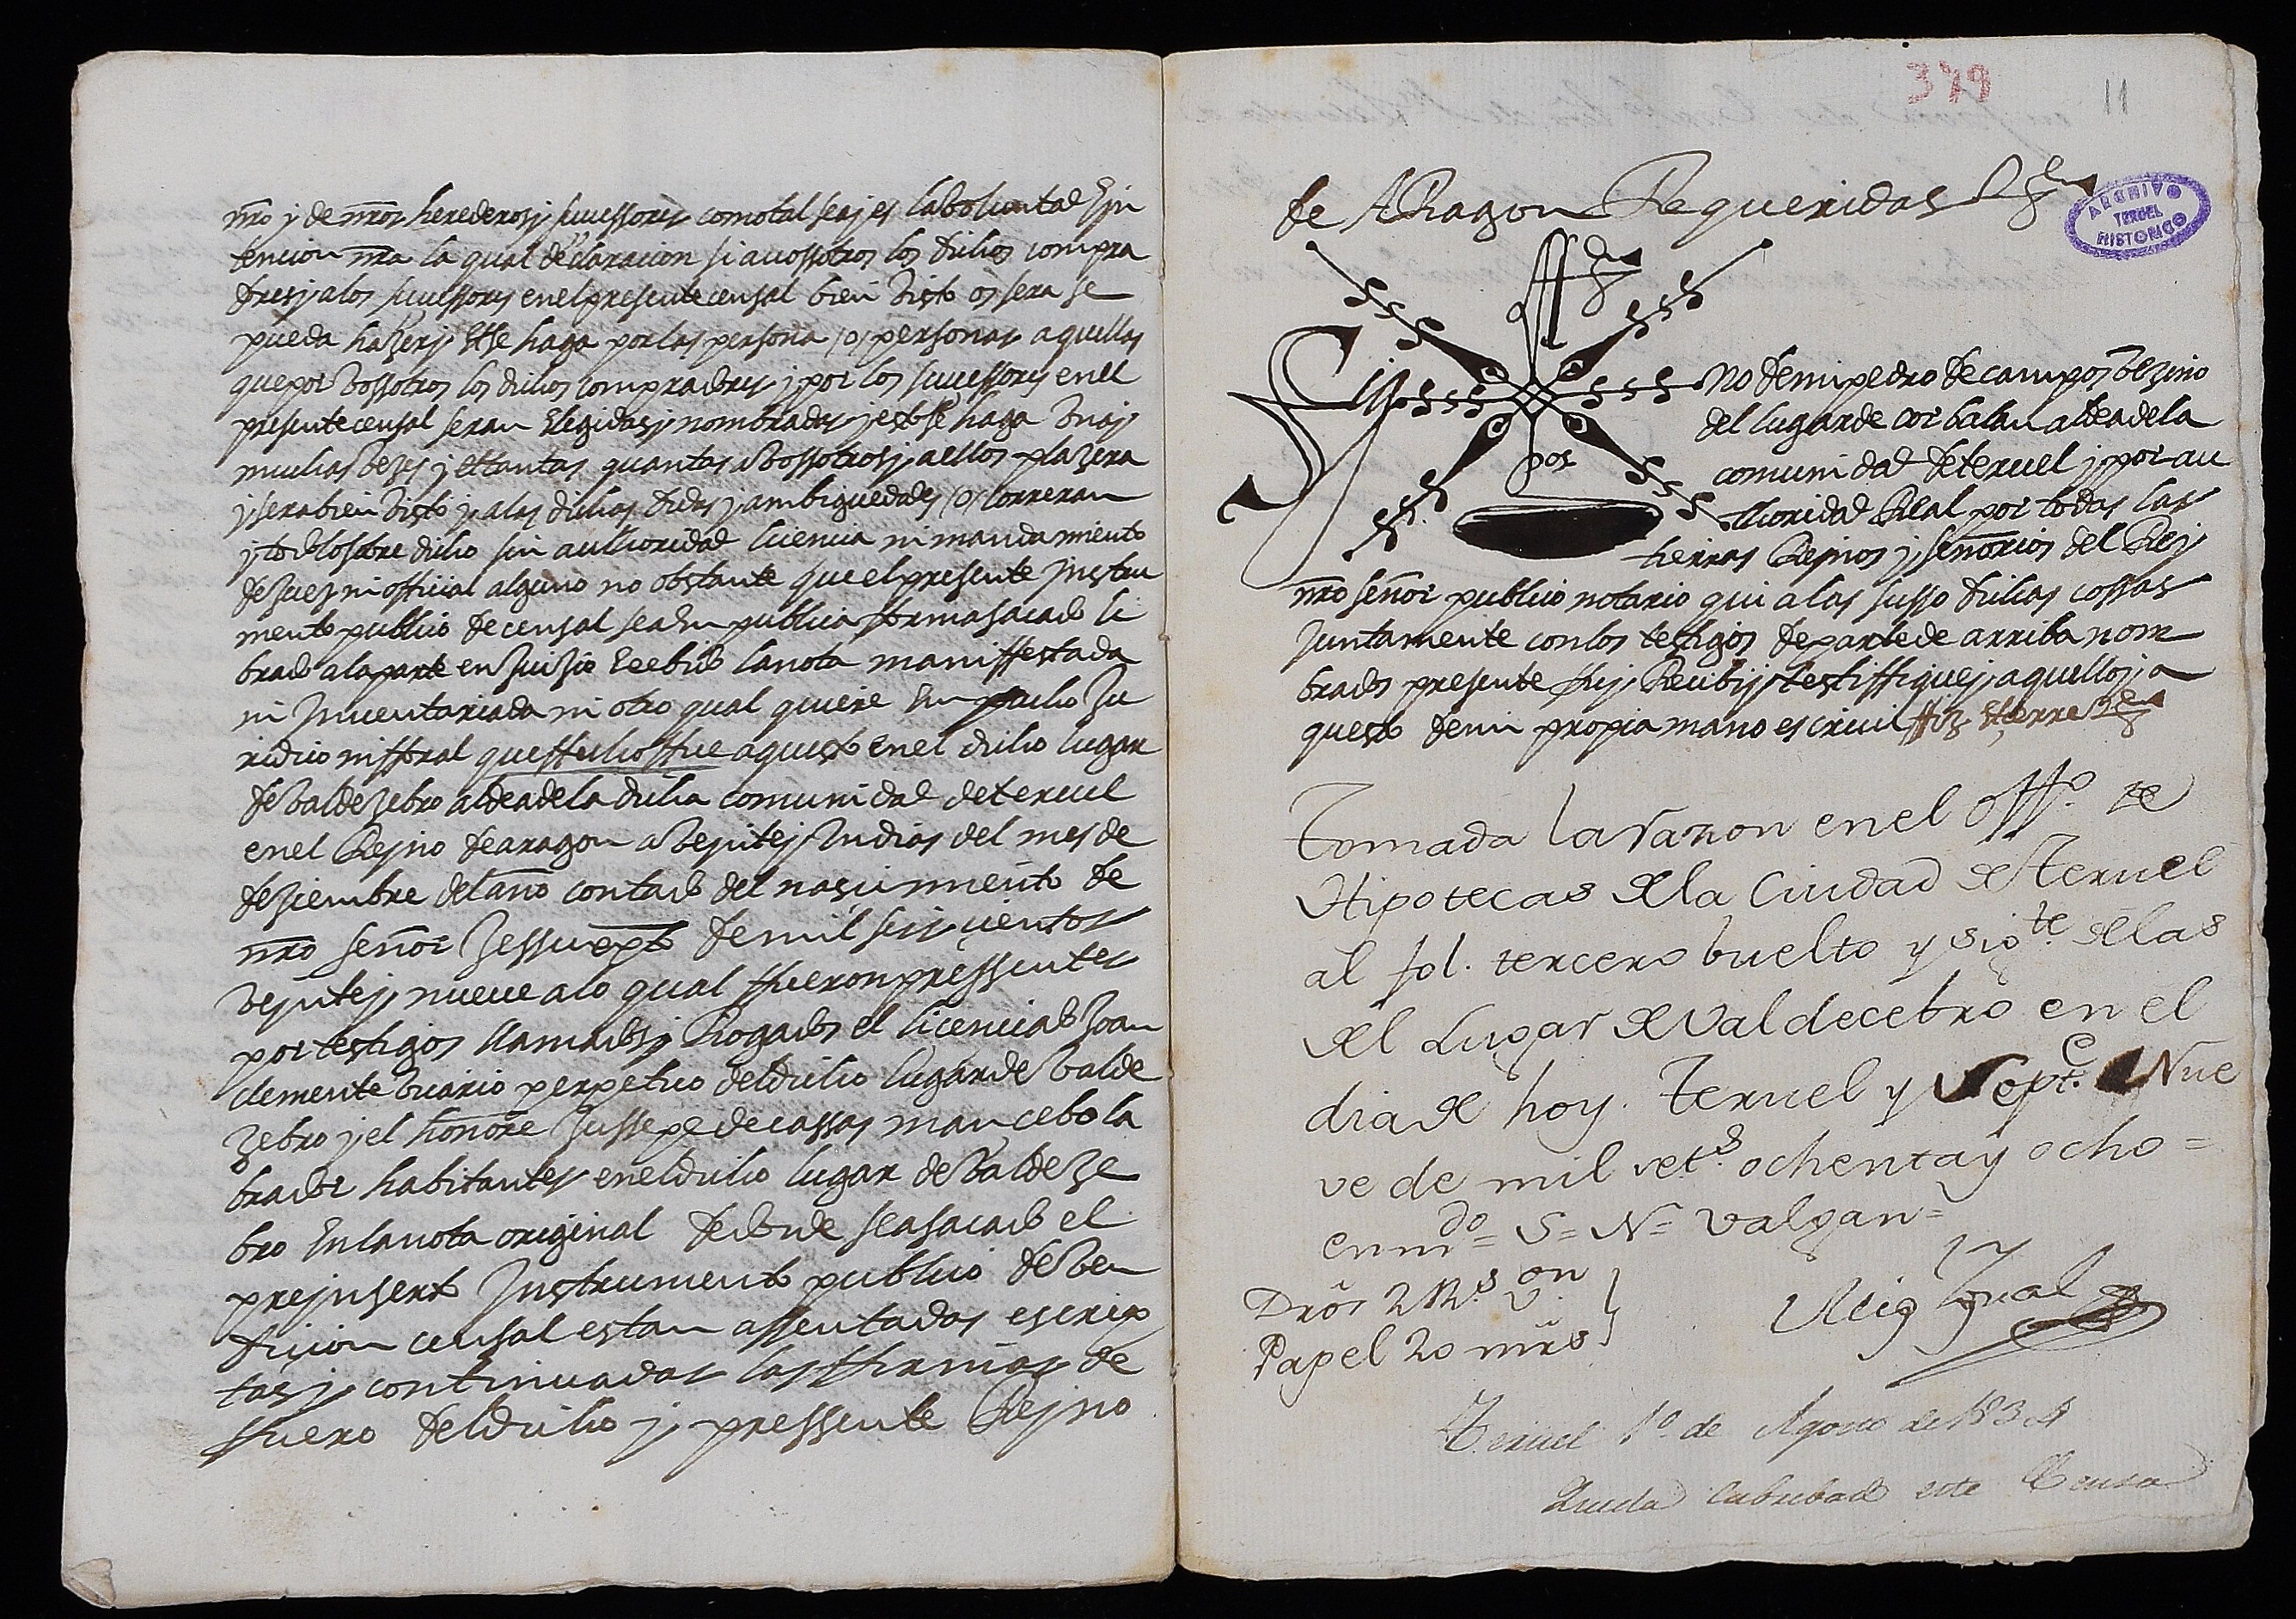 nr̃o y de nr̃os herederos y successores como tal sea y es la boluntad E yn
tencion nr̃a la qual declaracion si a vossotros los dichos compra
dores y a los successores en el presente censal bien visto os sera se
pueda hazer y Etse haga por las persona (o) personas aquellas
que por vossotros los dichos compradores y por los successores en el
presente censal seran Elegidas y nombradas y esto se haga Vna y
muchas vezes y ettantas quantas a vossotros y a ellos plazera
y sera bien visto y a las dichas dudas y ambiguedades (o) correran
y todo lo sobre dicho sin authoridad licencia ni mandamiento
de Juez ni official alguno no obstante que el presente Instru
mento publico de censal sea En publica fforma sacado li
brado a la parte en Juizio Eexbido la nota maniffestada
ni Inuentariada ni otro qual quiere Em pacho Ju
ridico ni fforal que ffecho ffue aquesto en el dicho lugar
de Valdezebro aldea de la dicha comunidad de teruel
en el Reyno de aragon a Veynte y Vn dias del mes de
deziembre del año contado del nascimiento de
nr̃o señor Jessucxpto de mil seys cientos
Veynte y nueue a lo qual ffueron pressentes
por testigos llamados y Rogados el licenciado Joan
clemente bicario perpetuo del dicho lugar de Valde
zebro y el honore Jussepe de cassas mancebo la
brador habitantes en el dicho lugar de Valdeze
bro En la nota original de donde se a sacado el
preinserto Instrumento publico de Ven
dicion censal estan assentadas escrip
tas y continuadas las ffirmas de
ffuero del dicho y pressente Reyno
379
11
de ARagon Requeridas
ARCHIVO
TERUEL
HISTORICO
Sig
no de mi pedro de campos Vezino
del lugar de corbalan aldea de la
comunidad de teruel y por au
thoridad Real por todas las
tierras Reynos y señorios del Rey
nr̃o señor publico notario qui a las susso dichas cossas
Juntamente con los testigos de parte de arriba nom
brados presente ffuy Recibi y testiffique y aquello y a
questo de mi propia mano escriui
Tomada la razon en el Offº. de
Hipotecas de la Ciudad de Teruel
al fol. tercero buelto y sigte. de las
del Lugar de Valdecebro en el
dia de hoy. Teruel y Septe. Nue
ve de mil sets. ochenta y ocho =
enmdo = S = N = valgan =
Dros 2 Rs. von.
Papel 20 mrs
Mig Igual
Teruel 1º. de Agosto de 1834
Queda cabrebado este Censo